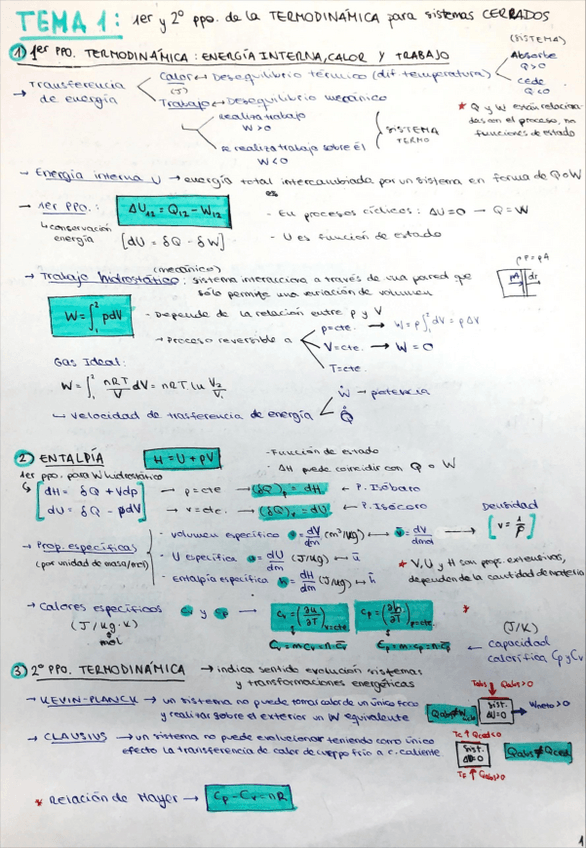 TEMA 1: 1er y 2º ppo. de la TERMODINÁMICA para sistemas CERRADOS
1) 1er PPO. TERMODINÁMICA: ENERGÍA INTERNA, CALOR Y TRABAJO
(SISTEMA)
→ Transferencia de energía
Calor ↔ Desequilibrio térmico (dif temperatura)
(J)
Absorbe Q>0
Cede Q<0
Trabajo ↔ Desequilibrio mecánico
realiza trabajo W>0
se realiza trabajo sobre él W<0
SISTEMA TERMO
* Q y W están relacionadas con el proceso, no funciones de estado
→ Energía interna U → energía total intercambiada por un sistema en forma de Q o W
→ 1er PPO.: ΔU₁₂ = Q₁₂ - W₁₂
↳ conservación energía
[dU = δQ - δW]
- En procesos cíclicos: ΔU=0 → Q=W
- U es función de estado
(mecánico)
→ Trabajo hidrostático: sistema interacciona a través de una pared que
sólo permite una variación de volumen
pA dr
W = ∫₁² pdV
- Depende de la relación entre p y V
- Proceso reversible a
p=cte. → W = p∫₁² dV = pΔV
V=cte. → W=0
T=cte.
Gas Ideal:
W = ∫₁² nRT/V dV = nRT ln V₂/V₁
↪ velocidad de trasferencia de energía
Ẇ → potencia
Q̇
2) ENTALPÍA H = U + pV
- Función de estado
- ΔH puede coincidir con Q o W
1er ppo. para W hidrostático
dH = δQ + Vdp → p=cte → (δQ)p = dH ← P. Isóbaro
dU = δQ - pdV → v=cte. → (δQ)v = dU ← P. Isócoro
→ Prop. específicas
(por unidad de masa/mol)
- volumen específico v = dV/dm (m³/kg) ↔ v̄ = dV/dmol →
Densidad
[v = 1/ρ]
- U específica u = dU/dm (J/kg) ↔ ū
- Entalpía específica h = dH/dm (J/kg) ↔ h̄
* V, U y H son props. extensivas, dependen de la cantidad de materia
→ Calores específicos cv y cp → cv = (∂u/∂T)v=cte. cp = (∂h/∂T)p=cte. *
(J/kg·K)
mol
Cv = m·cv = n·c̄v Cp = m·cp = n·c̄p
(J/K)
← capacidad calorífica Cp y Cv
3) 2º PPO. TERMODINÁMICA → indica sentido evolución sistemas
y transformaciones energéticas
→ KEVIN-PLANCK → un sistema no puede tomar calor de un único foco
y realizar sobre el exterior un W equivalente
Qabs>0
Sist. ΔU=0
Wneto>0
→ CLAUSIUS → un sistema no puede evolucionar teniendo como único
efecto la transferencia de calor de cuerpo frío a c. caliente
Tc ↑ Qced<0
Sist. ΔU=0
Qabs ≠ Qced
TF ↑ Qabs>0
* Relación de Mayer → Cp - Cv = nR
1